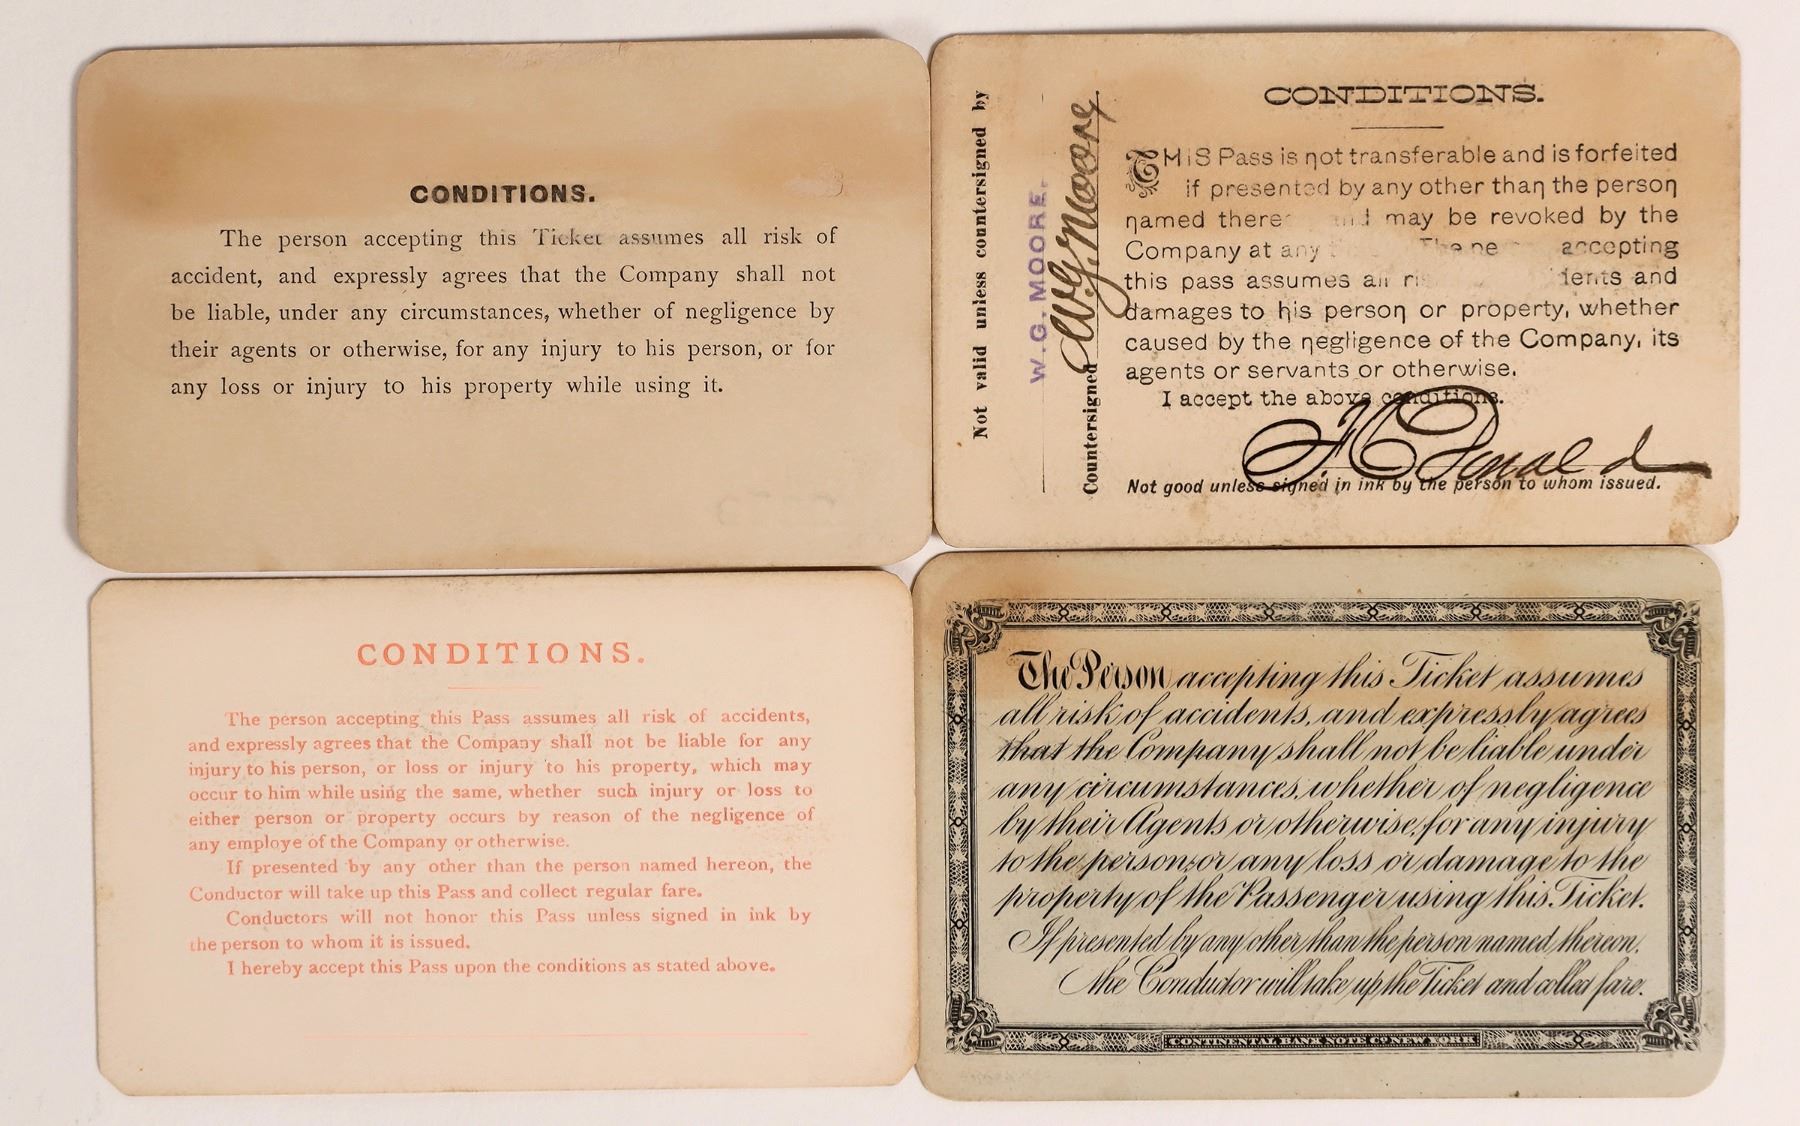 CONDITIONS.
The person accepting this Ticket assumes all risk of
accident, and expressly agrees that the Company shall not
be liable, under any circumstances, whether of negligence by
their agents or otherwise, for any injury to his person, or for
any loss or injury to his property while using it.
Not valid unless countersigned by
W. G. MOORE.
Countersigned W. G. Moore
CONDITIONS.
THiS Pass is not transferable and is forfeited
if presented by any other than the person
named there and may be revoked by the
Company at any The pe accepting
this pass assumes all ri idents and
damages to his person or property, whether
caused by the negligence of the Company, its
agents or servants or otherwise.
I accept the above conditions.
Donald
Not good unless signed in ink by the person to whom issued.
CONDITIONS.
The person accepting this Pass assumes all risk of accidents,
and expressly agrees that the Company shall not be liable for any
injury to his person, or loss or injury to his property, which may
occur to him while using the same, whether such injury or loss to
either person or property occurs by reason of the negligence of
any employe of the Company or otherwise.
If presented by any other than the person named hereon, the
Conductor will take up this Pass and collect regular fare.
Conductors will not honor this Pass unless signed in ink by
the person to whom it is issued.
I hereby accept this Pass upon the conditions as stated above.
The Person accepting this Ticket assumes
all risk of accidents, and expressly agrees
that the Company shall not be liable under
any circumstances, whether of negligence
by their Agents or otherwise, for any injury
to the person, or any loss or damage to the
property of the Passenger using this Ticket.
If presented by any other than the person named thereon,
the Conductor will take up the Ticket and collect fare.
CONTINENTAL BANK NOTE CO. NEW YORK